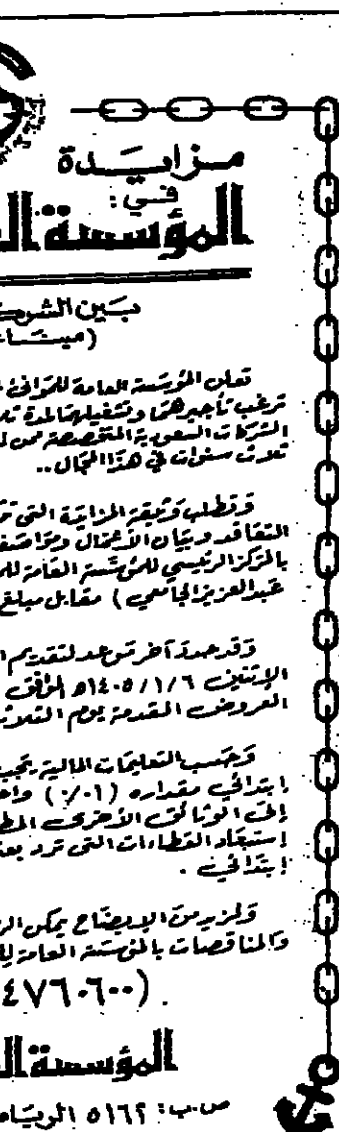 مزايدة
في:
المؤسسة
بين
تعلن المؤسسة العامة للموانئ
ترغب تأجيرها وتشغيلها لمدة
الشركات السعودية المتخصصة ممن
ثلاث سنوات في هذا المجال..
وتطلب وثيقة المزايدة التي
التعاقد وبيان الأعمال
بالمركز الرئيسي للمؤسسة العامة
عبدالعزيز الجامعي ) مقابل مبلغ
وقد حدد آخر موعد لتقديم
الاثنين ١٤٠٥/١/٦هـ الموافق
العروض المقدمة يوم الثلاث
وحسب التعليمات المالية يجب
إبتدائي مقداره (١٠٪)
إلى الوثائق الأخرى
إستبعاد العطاءات التي ترد
إبتدائي .
ولمزيد من الإيضاح يمكن
والمناقصات بالمؤسسة العامة
(٤٧٦٠٦٠٠) .
المؤسسة
ص.ب: ٥١٦٢